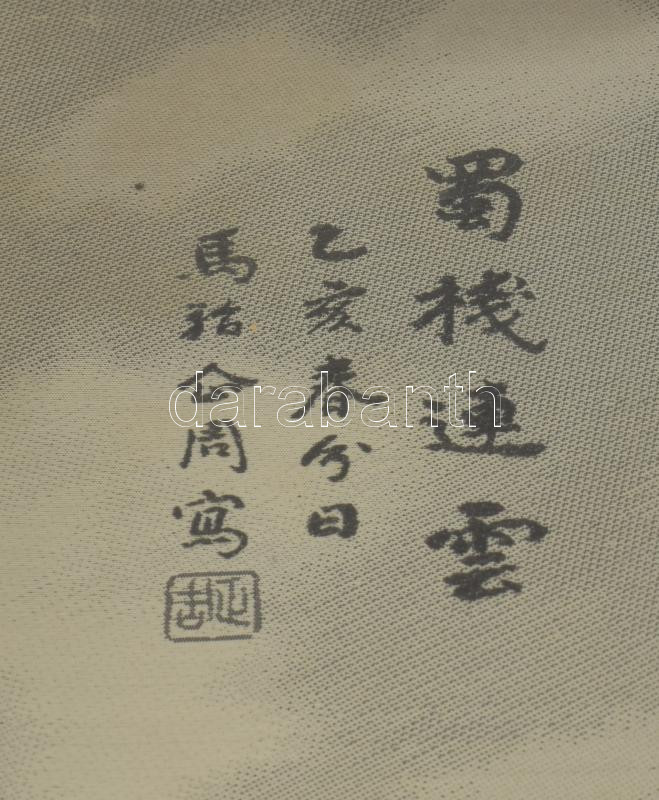 蜀棧連雲
乙亥春分日
馬
周寫
darabanth